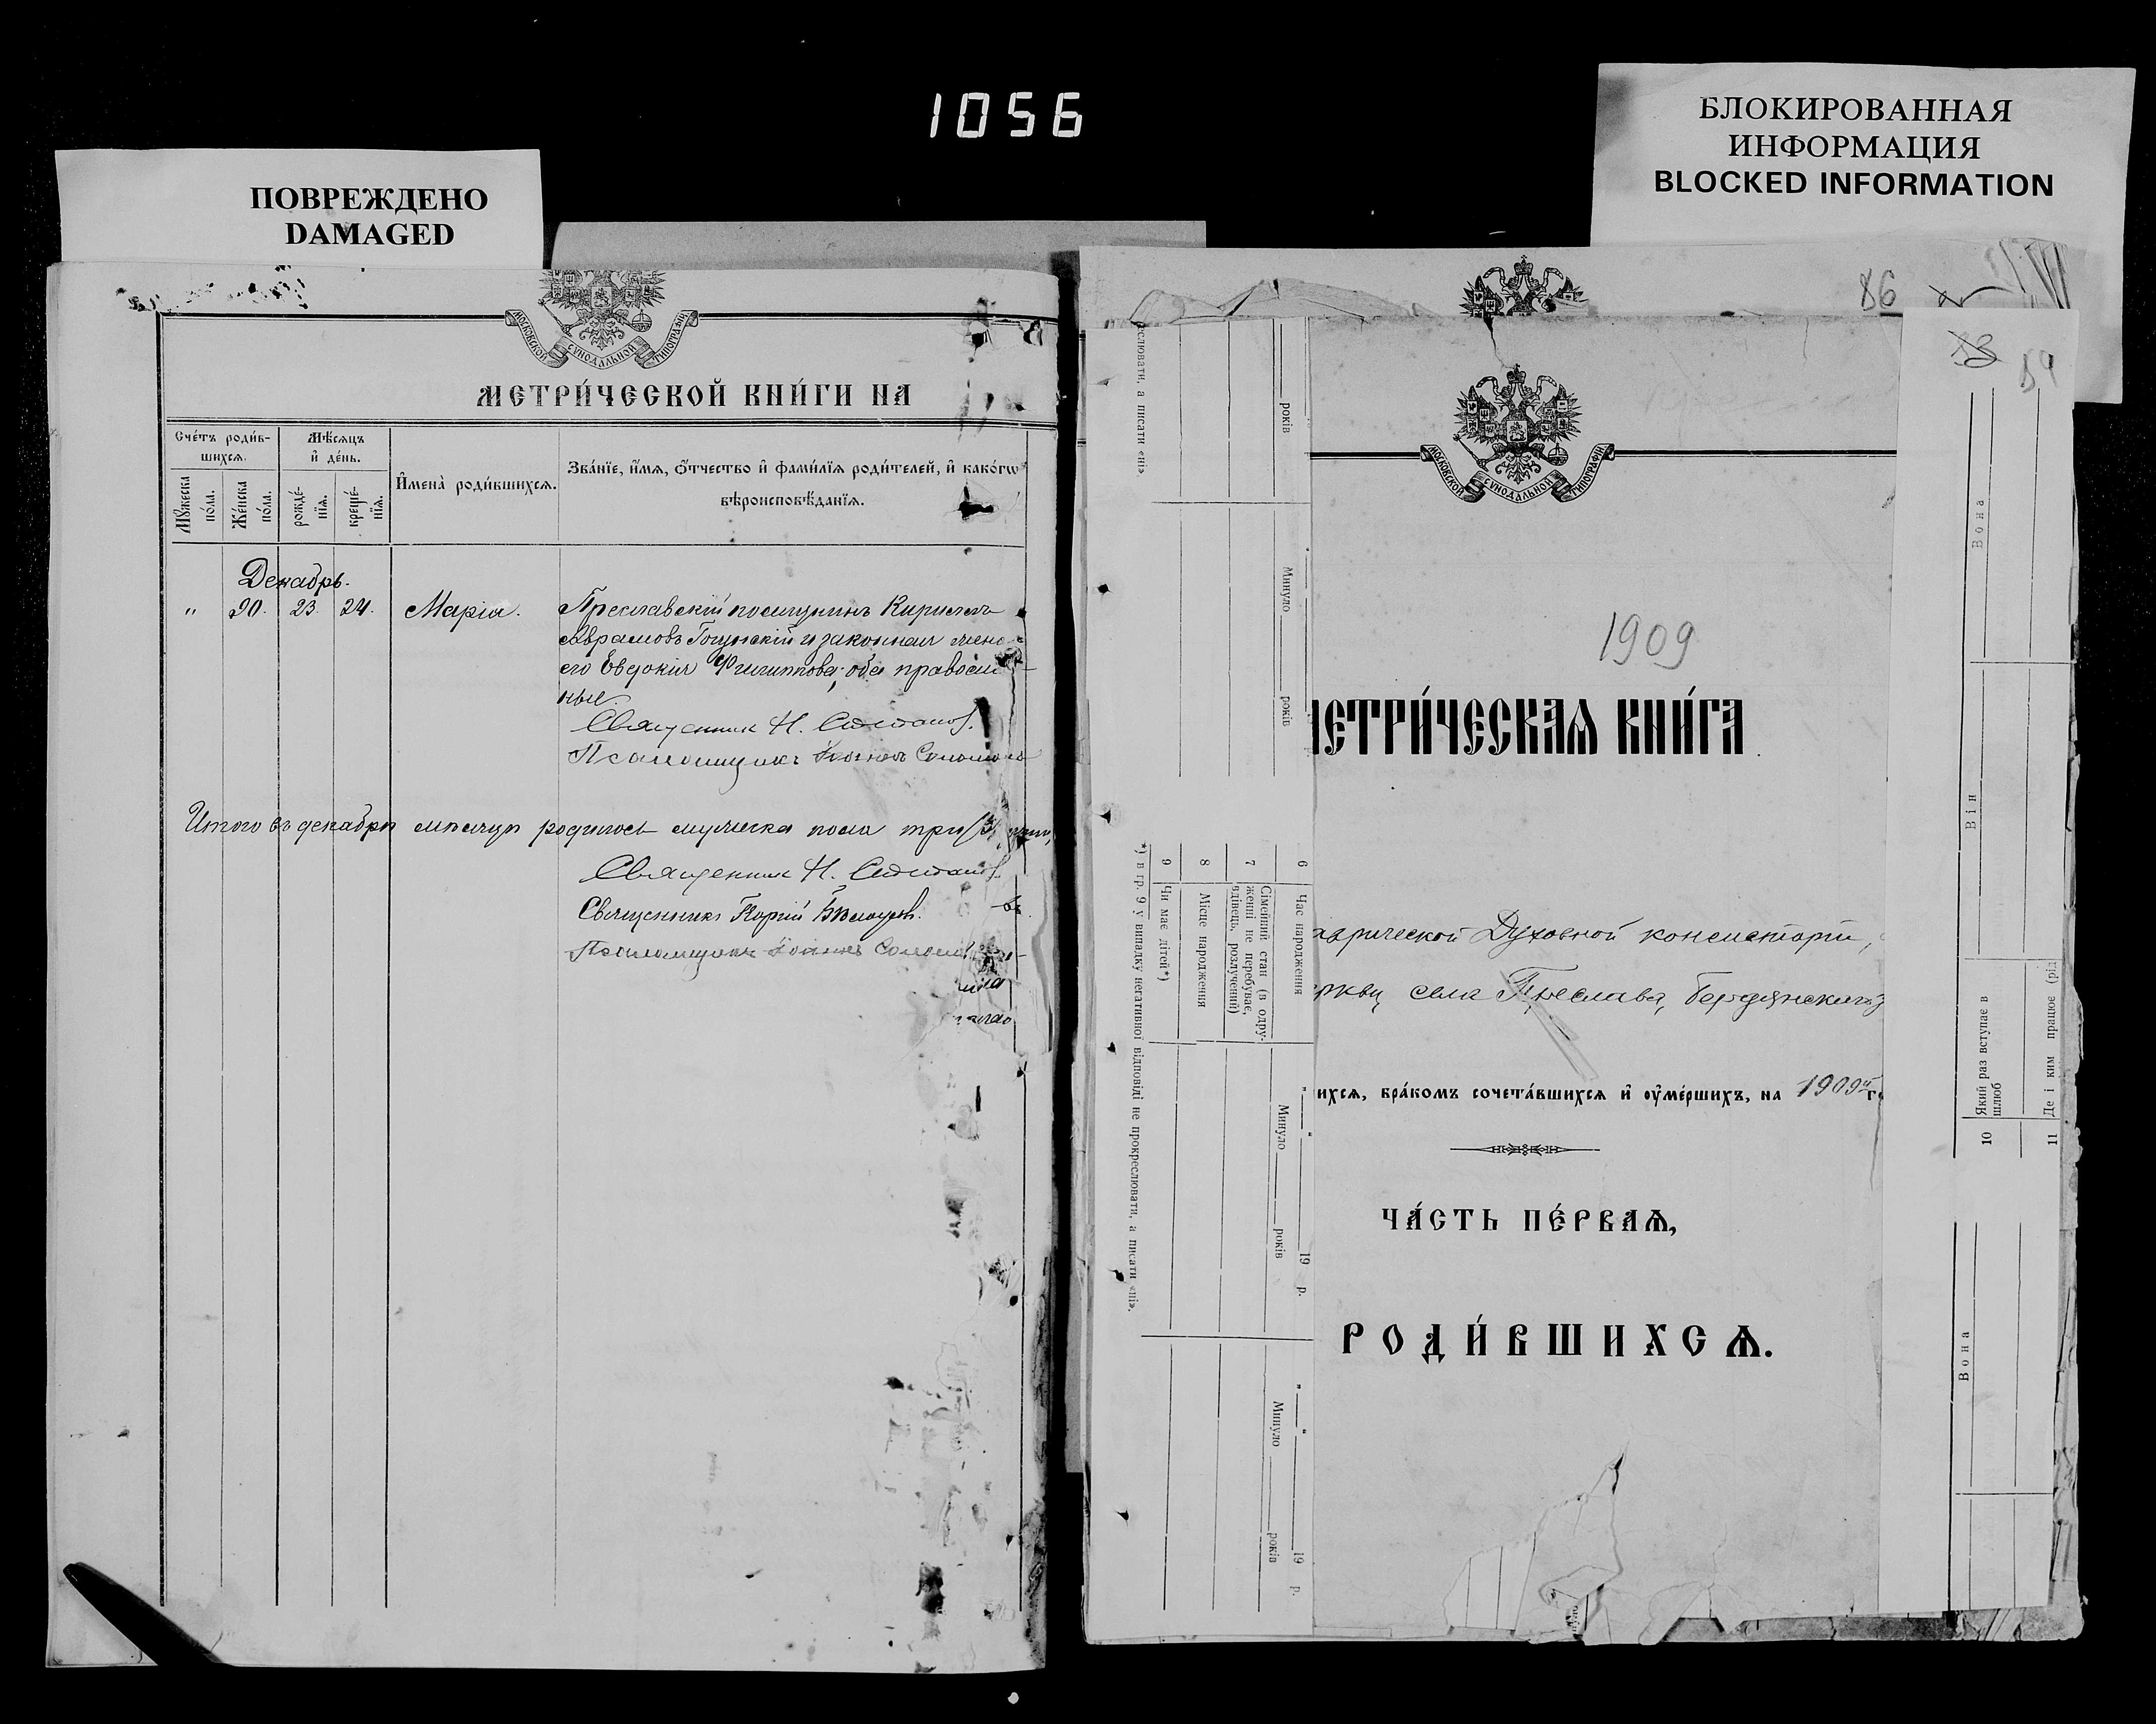 1056
ПОВРЕЖДЕНО
DAMAGED
БЛОКИРОВАННАЯ
ИНФОРМАЦИЯ
BLOCKED INFORMATION
МОСКОВСКОЙ СѴНОДАЛЬНОЙ ТИПОГРАФІИ
МЕТРИ́ЧЕСКОЙ КНИ́ГИ НА
Сче́тъ роди́в-
шихсѧ.
Мѣ́сѧцъ
и҆ де́нь.
Мꙋ́жеска
по́ла.
Же́нска
по́ла.
рожде́-
нїѧ.
креще́-
нїѧ.
И҆мена̀ роди́вшихсѧ.
Зва́нїе, и҆́мѧ, ѻ҆́тчество и҆ фами́лїѧ роди́телей, и҆ како́гѡ
вѣроисповѣ́данїѧ.
Декабрь.
" 20. 23. 24. Марія.
Преславскій поселянинъ Кириллъ
Аврамовъ и законная жена
его Евдокія Филиппова; оба правосла
ные.
Священник Н.
Псаломщикъ
Итого въ декабрѣ мѣсяцѣ родилось мужеска пола три (3)
Священник Н.
Священникъ Георгій
Псаломщикъ
въ
86
53
54
МОСКОВСКОЙ СѴНОДАЛЬНОЙ ТИПОГРАФІИ
1909
ЕТРИ́ЧЕСКАѦ КНИ́ГА
аврической Духовной консисторіи,
ркви села Преслава, Бердянскаго
ихсѧ, бра́комъ сочета́вшихсѧ и҆ ᲂу҆ме́ршихъ, на 1909й г
ЧА́СТЬ ПЕ́РВАѦ,
РОДИ́ВШИХСѦ.
еслювати, а писати «ні».
років
Минуло
років
6 Час народження
7 Сімейний стан (в одру-
женні не перебуває,
вдівець, розлучений)
8 Місце народження
9 Чи має дітей*)
*) в гр. 9 у випадку негативної відповіді не прокреслювати, а писати «ні».
" " 19 р.
Минуло років
" " 19 р.
Минуло років
Вона
Він
10 Який раз вступає в
шлюб
11 Де і ким працює (рід
Вона